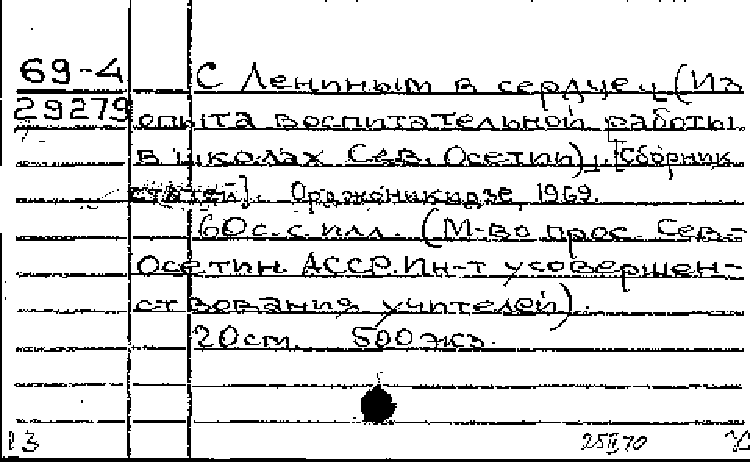 69-4
29279
С Лениным в сердце. (Из
опыта воспитательной работы
в школах Сев. Осетии). [Сборник
статей]. Орджоникидзе, 1969.
60 с. с илл. (М-во прос. Сев.-
Осетин. АССР. Ин-т усовершен-
ствования учителей).
20 см. 500 экз.
13
25II70